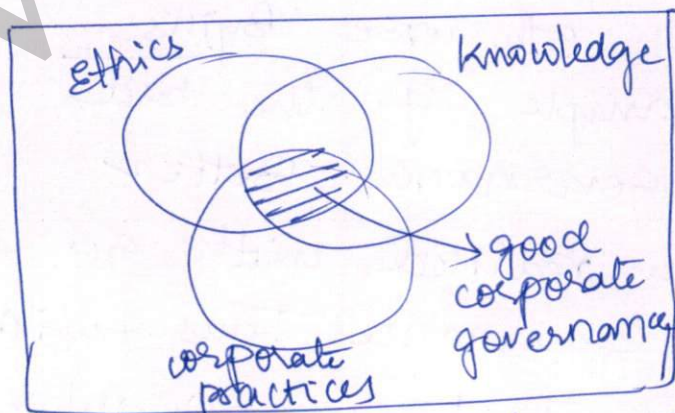 Ethics
Knowledge
good
corporate
governance
corporate
practices